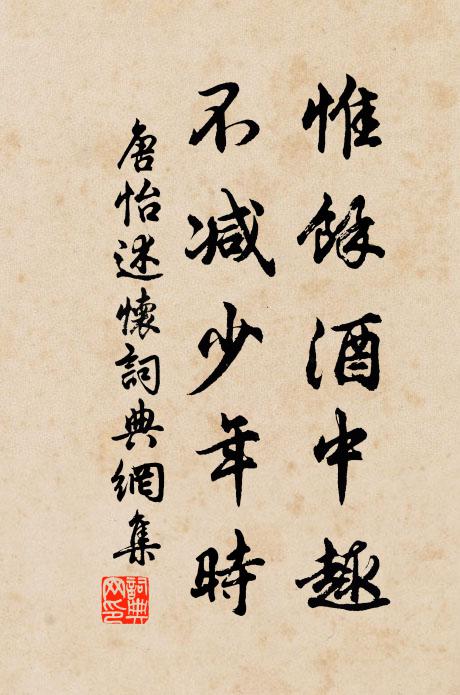 惟餘酒中趣
不减少年時
唐怡述懷詞典網集
詞典
网印